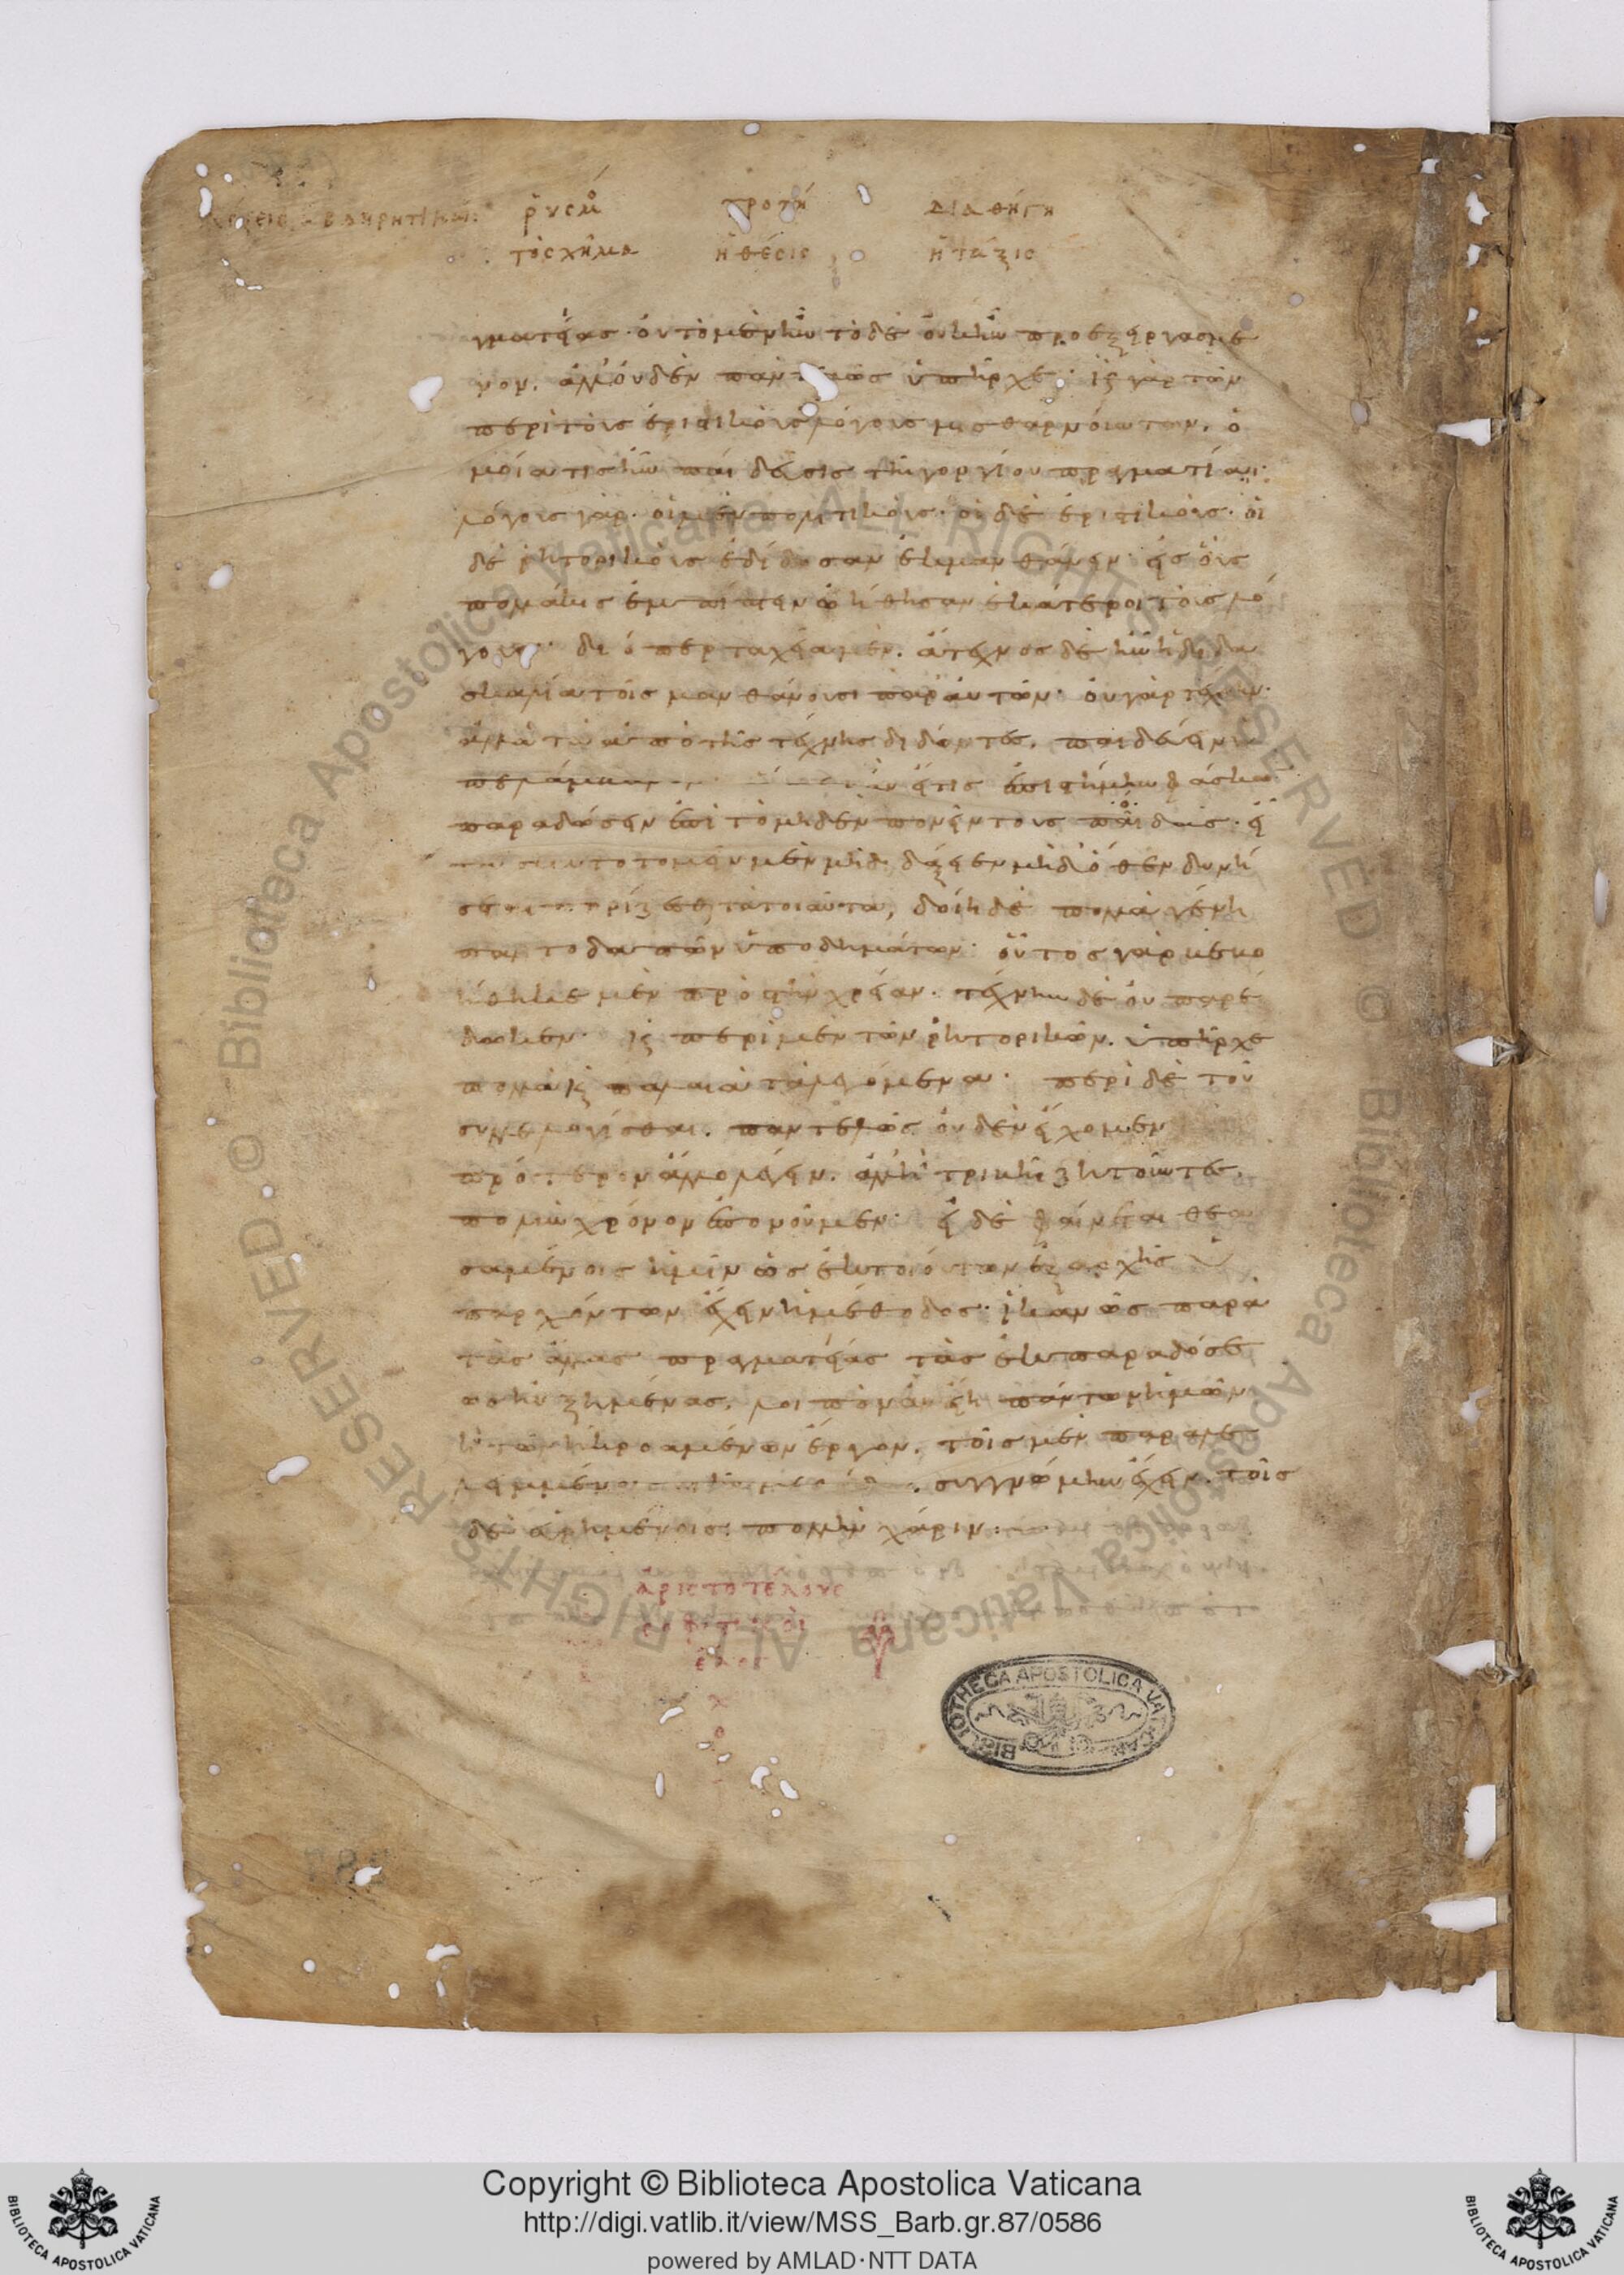 λέξεις ἀβδηρητικαί: ῥυσμό τροπή διαθήγη
τὸ σχῆμα ἡ θέσις ἡ τάξις
γματείας· οὐ τὸ μὲν ἦν τὸ δὲ οὐκ ἦν προεξειργασμέ
νον. ἀλλ' οὐδὲν παντελῶς ὑπῆρχε· καὶ γὰρ τῶν
περὶ τοὺς ἐριστικοὺς λόγους μισθαρνούντων. ὁ
μοία τις ἦν παίδευσις τῆ γοργίου πραγματίαι·
λόγους γὰρ· οἱ μὲν πολιτικούς· οἱ δὲ ἐριστικούς· οἱ
δὲ ῥητορικοὺς ἐδίδοσαν ἐκμανθάνειν· εἰς οὓς
πολλάκις ἐμπίπτειν ὠήθησαν ἑκάτεροι τοὺς λό
γους· διόπερ ταχεῖα μὲν. ἄτεχνος δὲ ἦν ἡ διδα
σκαλία τοῖς μανθάνουσι παρ' αὐτῶν· οὐ γὰρ τέχνην·
ἀλλὰ τὰ ἀπὸ τῆς τέχνης διδόντες. παιδεύειν
ὑπελάμβανον εἴτις ἐπιστήμην φάσκων
παραδώσειν ἐπὶ τὸ μηδὲν πονεῖν τοὺς πόδας· εἶ
τα σκυτοτομεῖν μὲν μὴ διδάξειεν μηδ' ὅθεν δυνή
σεται πορίζεσθαι τὰ τοιαῦτα, δοίη δὲ πολλὰ γένη
παντοδαπῶν ὑποδημάτων· οὗτος γὰρ βεβο
ήθηκε μὲν πρὸς τὴν χρείαν· τέχνην δὲ οὐ παρέ
δωκεν· καὶ περὶ μὲν τῶν ῥητορικῶν. ὑπῆρχε
πολλὰ καὶ παλαιὰ τὰ λεγόμενα· περὶ δὲ τοῦ
συλλελογίσθαι. παντελῶς οὐδὲν εἴχομεν
πρότερον ἄλλο λέγειν. ἀλλ' ἢ τριβῆ ζητοῦντες.
πολὺν χρόνον ἐπονοῦμεν· εἰ δὲ φαίνεται θεα
σαμένοις ἡμῖν ὡς ἐκ τοιούτων ἐξ ἀρχῆς ὑ
παρχόντων ἔχειν ἡ μέθοδος· ἱκανῶς παρὰ
τὰς ἄλλας πραγματείας τὰς ἐκ παραδόσε
ως ηὐξημένας. λοιπὸν ἂν εἴη πάντων ἡμῶν
ἢ τῶν ἠκροαμένων ἔργον. τοῖς μὲν παραλε
λειμμένοις τῆς μεθόδου. συγγνώμην ἔχειν. τοῖς
δὲ εὑρημένοις πολλὴν χάριν.
ἀριστοτέλους
σοφιστικοὶ
ἔλεγ
χ
ο
BIBLIOTHECA APOSTOLICA VATICANA
Copyright © Biblioteca Apostolica Vaticana
http://digi.vatlib.it/view/MSS_Barb.gr.87/0586
powered by AMLAD·NTT DATA